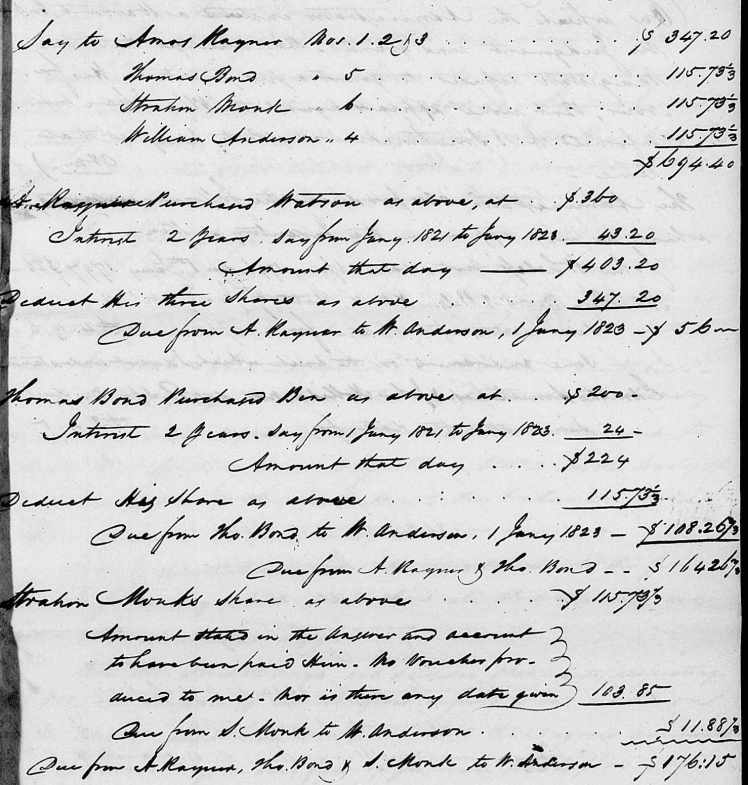 Say to Amos Rayner Nos. 1. 2 & 3 . . . . . . . . $ 347.20
Thomas Bond " 5 . . . . . . . 115.73⅓
Strahon Monk 6 . . . . . . . 115.73⅓
William Anderson " 4 . . . . . . 115.73⅓
$694.40
Rayner Purchased Watson as above, at . . $360
Interest 2 Years. Say from Jany. 1821 to Jany 1823. 43.20
Amount that day — $403.20
Deduct His three Shares as above . . . . . 347.20
Due from A. Rayner to W. Anderson, 1 Jany 1823 – $ 56 —
Thomas Bond Purchased Ben as above at . . $200 -
Interest 2 Years. Say from 1 Jany 1821 to Jany 1823. 24 -
Amount that day . . . $224
Deduct His Share as above . . . . . 115.73⅓
Due from Tho. Bond to W. Anderson, 1 Jany 1823 – $108.26⅔
Due from A. Rayner & Tho. Bond - - $164.26⅔
Strahon Monks Share as above . . . . . $ 115.73⅓
Amount stated in the Answer and account
to have been paid Him. No Voucher pro-
duced to me. Nor is there any date given 103.85
Due from S. Monk to W. Anderson . . . . . . $11.88⅓
Due from A. Rayner, Tho. Bond & S. Monk to W. Anderson – $176.15